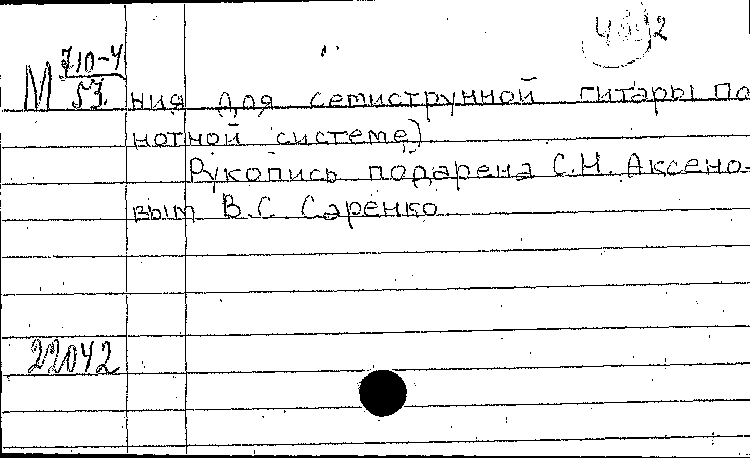 М 710-4
53.
ния для семиструнной гитары по
нотной системе)
Рукопись подарена С.Н. Аксено-
вым В.С Саренко
22042